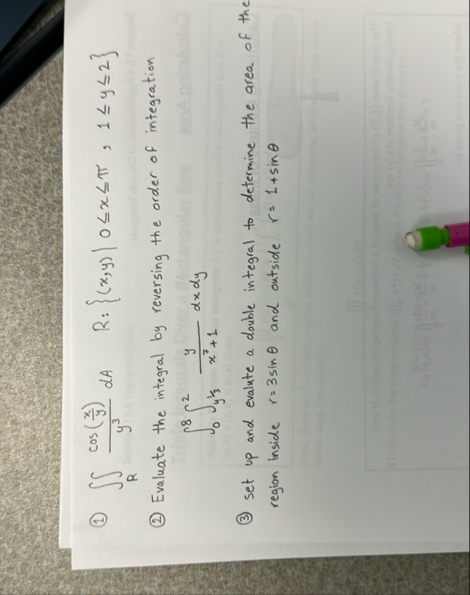 ① ∬_R cos(x/y)/y³ dA R: {(x,y) | 0 ≤ x ≤ π , 1 ≤ y ≤ 2}
② Evaluate the integral by reversing the order of integration
∫₀⁸ ∫_{y^{1/3}}^{2} y/(x⁷+1) dx dy
③ set up and evalute a double integral to determine the area of the
region inside r = 3 sin θ and outside r = 1 + sin θ